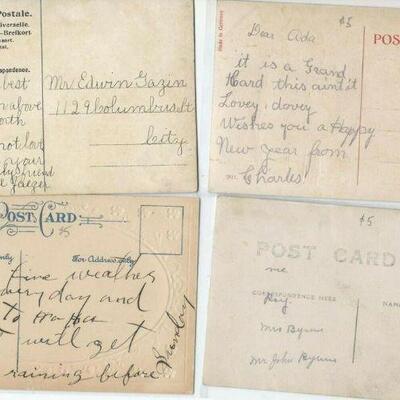 Postale.
iverselle.
-Brelkort.
pondence.
best
above
not love
your
friend
Mr Edwin Gazin
1129 Columbus St
City.
Made in Germany
$5
Dear Ada
POS
it is a Grand
Card this ain't it
Lovey, dovey
Wishes you a Happy
New year from
Charles
POST CARD
$5
only
For Address only
Fine weather
every day and
to
I will get
raining before
Sunday
$5
POST CARD
me
CORRESPONDENCE HERE
NAM
Roy.
Mrs Byrns
Mr John Byrns